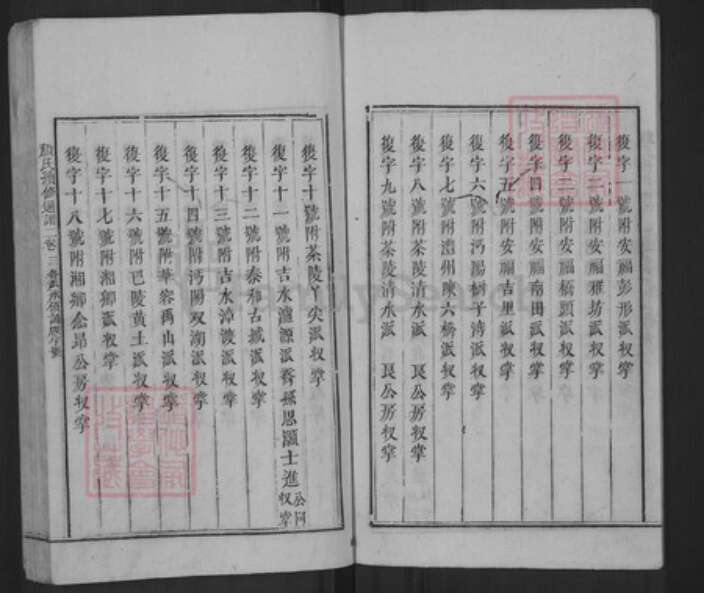 復字一號附安福彭形派收掌
復字二號附安福雅坊派收掌
復字三號附安福橋頭派收掌
復字四號附安福南田派收掌
復字五號附安福吉里派收掌
復字六號附沔陽樹子灣派收掌
復字七號附澧州陳六楊派收掌
復字八號附茶陵清水派 良公房收掌
復字九號附茶陵清水派 良公房收掌
復字十號附茶陵丫尖派收掌
復字十一號附吉水瀘源派裔孫恩灝士進公同收掌
復字十二號附泰和古城派收掌
復字十三號附吉水漳渡派收掌
復字十四號附沔陽双湖派收掌
復字十五號附華容禹山派收掌
復字十六號附巴陵黄土派收掌
復字十七號附湘鄉派收掌
復字十八號附湘鄉念昂公房收掌
FamilySearch